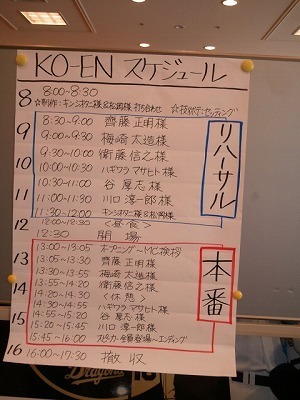 KO-EN スケジュール
8 8:00-8:30
☆制作:キンシオタニ様&松岡様 打ち合わせ ☆技術:セッティング
リハーサル
9 8:30-9:00 齊藤 正明様
9:00-9:30 梅崎 太造様
9:30~10:00 衛藤 信之様
10 10:00~10:30 ハギワラ マサヒト様
10:30~11:00 谷 厚志様
11 11:00~11:30 川口 淳一郎様
11:30~12:00 キンシオタニ様&松岡様
12 12:00-12:30 〈昼食〉
12:30 開場
本番
13 13:00~13:05 オープニング~MC挨拶
13:05~13:30 齊藤 正明様
13:30~13:55 梅崎 太造様
14 13:55~14:20 衛藤 信之様
14:20~14:30 〈休憩〉
14:30~14:55 ハギワラ マサヒト様
15 14:55~15:20 谷 厚志様
15:20~15:45 川口 淳一郎様
15:45~16:00 スピーカー全員登場~エンディング
16 16:00~17:30 撤収
Dragons